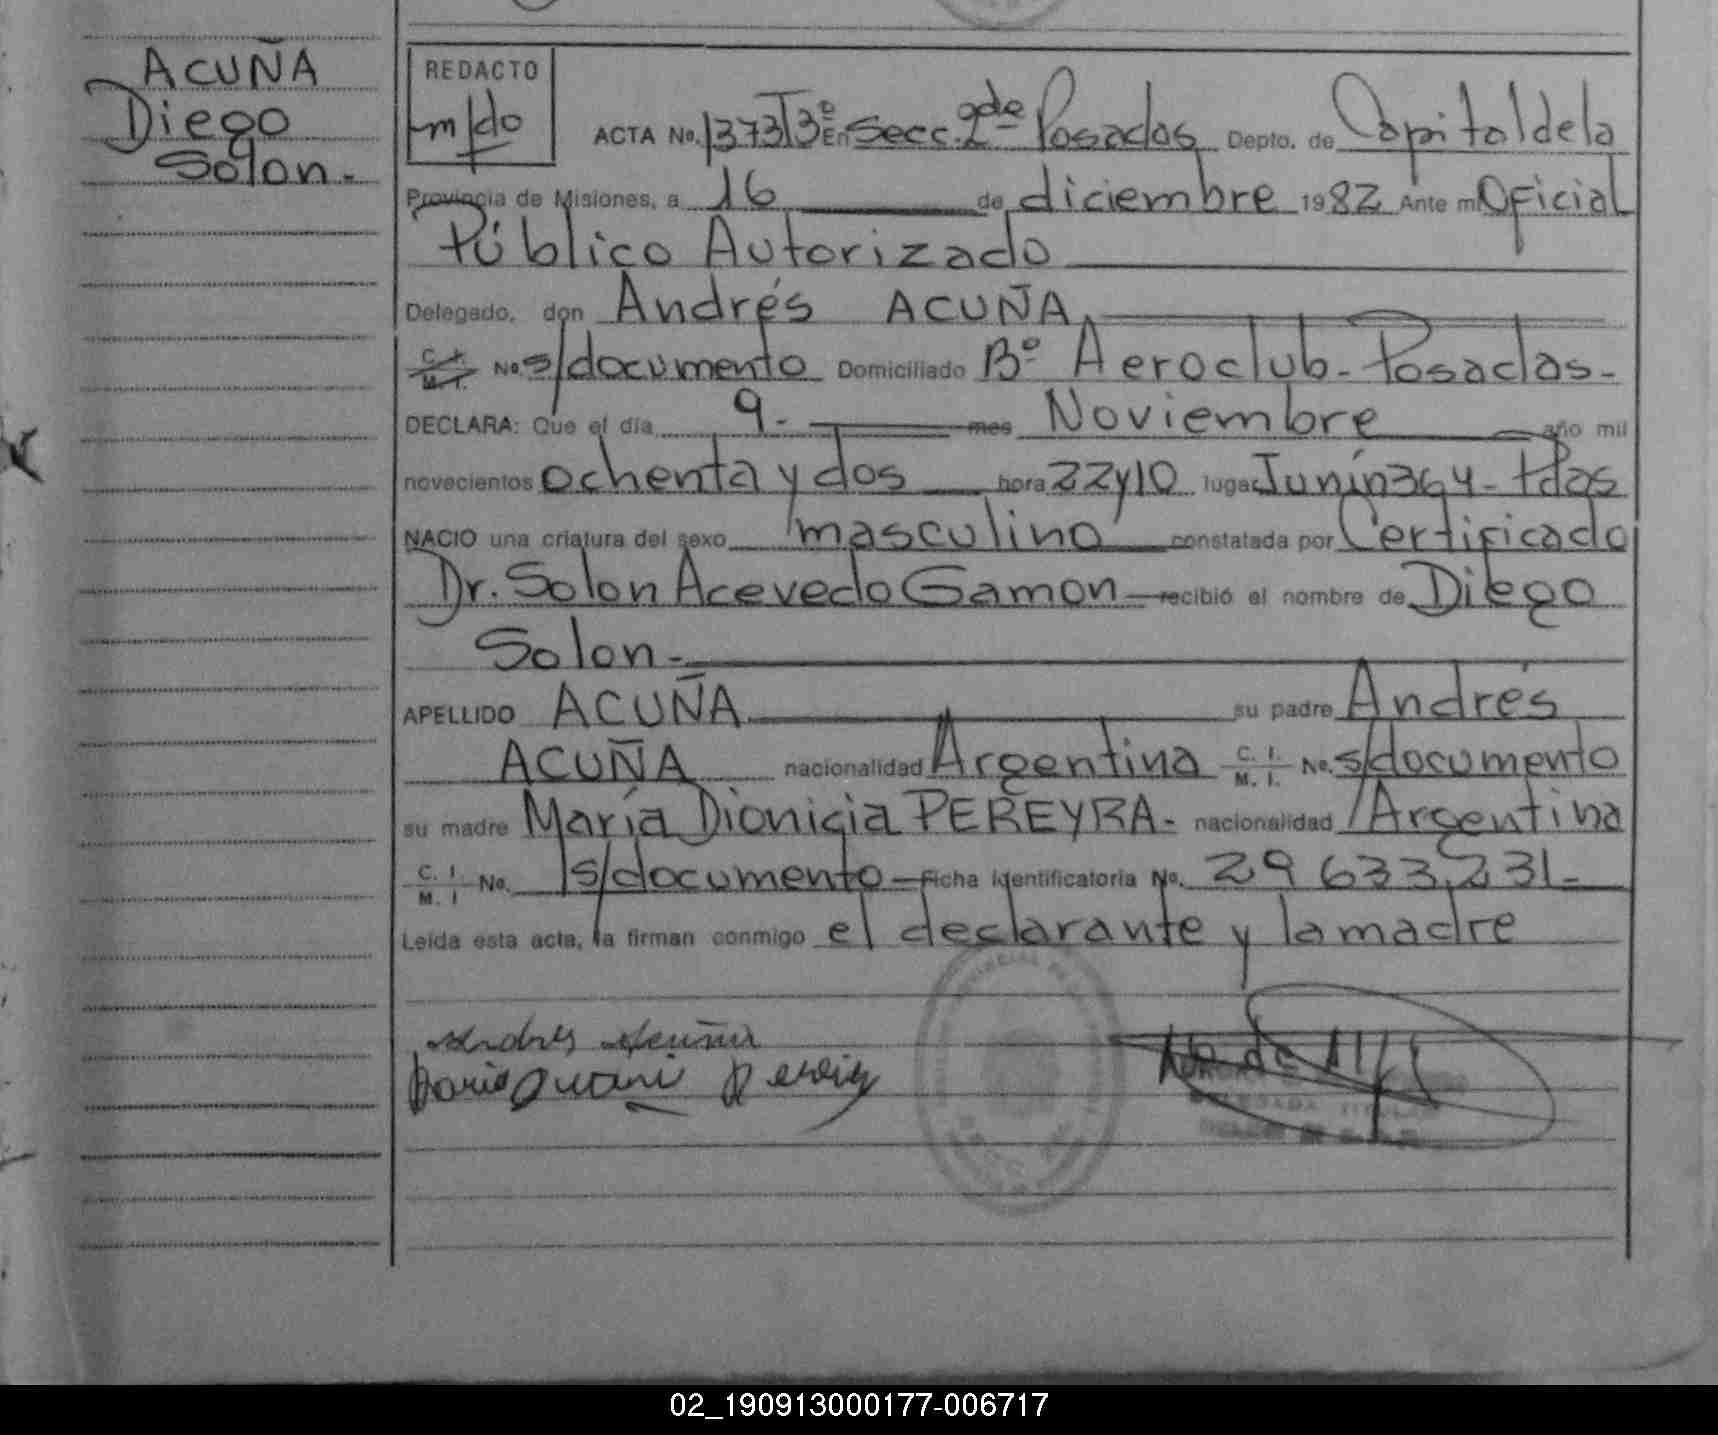 ACUÑA
Diego
Solon.-
REDACTO
m/do
ACTA No. 1373 Tº 3º En Secc. 2ª de Posadas Depto. de Capital de la
Provincia de Misiones, a 16 de diciembre 1982 Ante mi Oficial
Público Autorizado
Delegado, don Andrés ACUÑA
C. I. M. I. No. s/documento Domiciliado Bº Aeroclub.- Posadas.-
DECLARA: Que el día 9.- mes Noviembre año mil
novecientos ochenta y dos hora 22 y 10 lugar Junín 364 - Pdas
NACIO una criatura del sexo masculino constatada por Certificado
Dr. Solon Acevedo Gamon recibió el nombre de Diego
Solon.-
APELLIDO ACUÑA su padre Andrés
ACUÑA nacionalidad Argentina C. I. M. I. No. s/documento
su madre María Dionicia PEREYRA.- nacionalidad Argentina
C. I. M. I No. s/documento - Ficha identificatoria No. 29.633.231.-
Leída esta acta, la firman conmigo el declarante y la madre
Andres Acuña
02_190913000177-006717